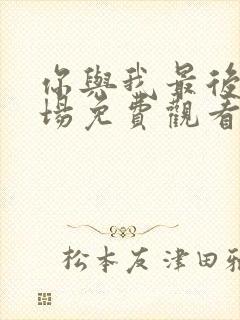 你與我最後
場免費觀看
松本友津田雅